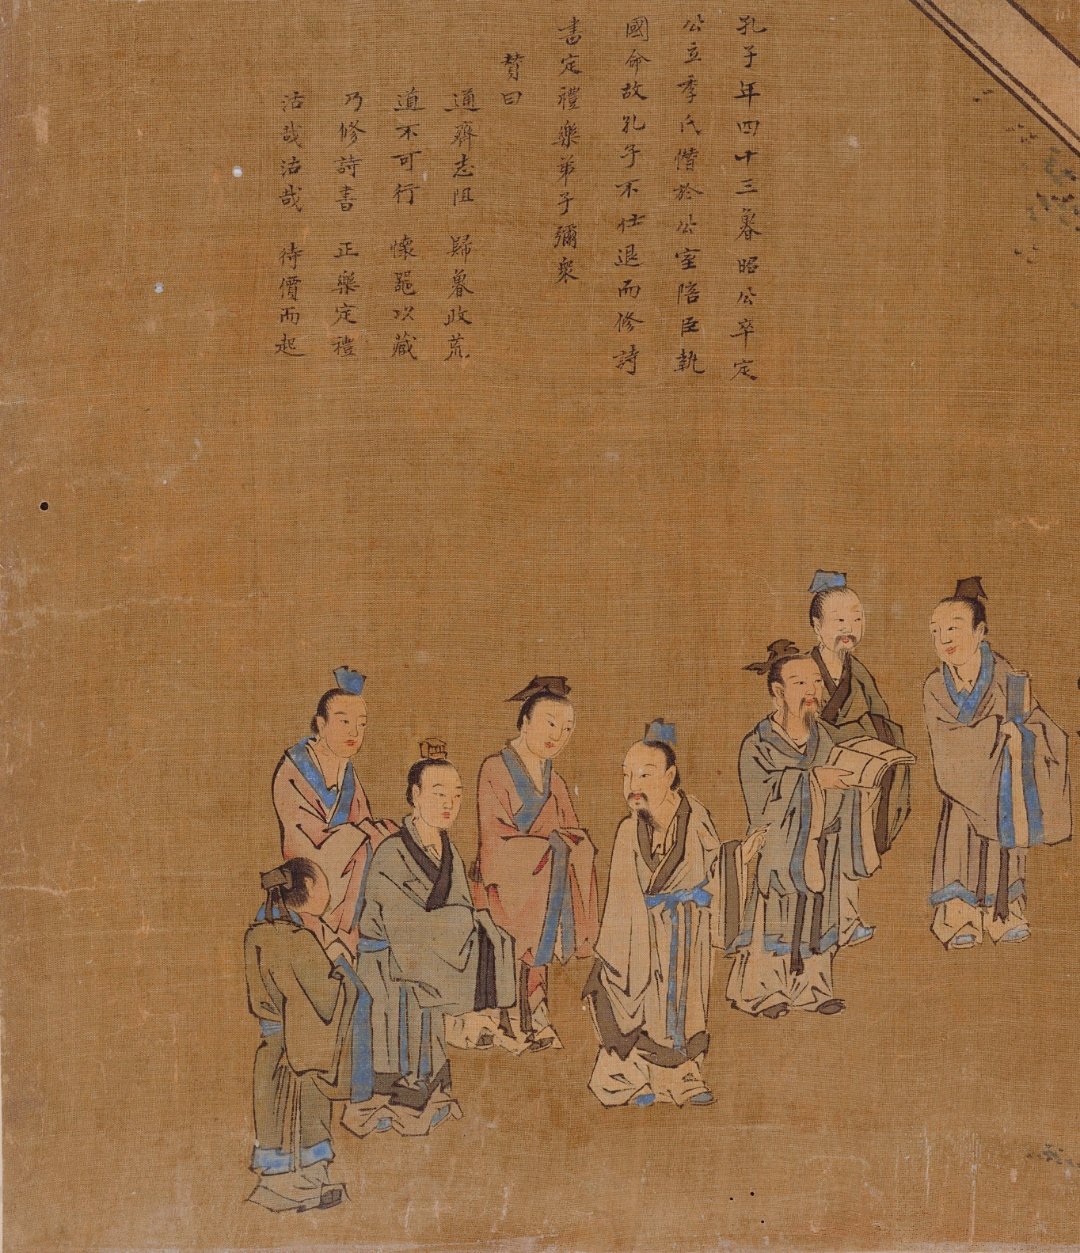 孔子年四十三魯昭公卒定
公立季氏僭於公室陪臣執
國命故孔子不仕退而修詩
書定禮樂弟子彌衆
贊曰
適齊志阻 歸魯政荒
道不可行 懷器以藏
乃修詩書 正樂定禮
沽哉沽哉 待價而起